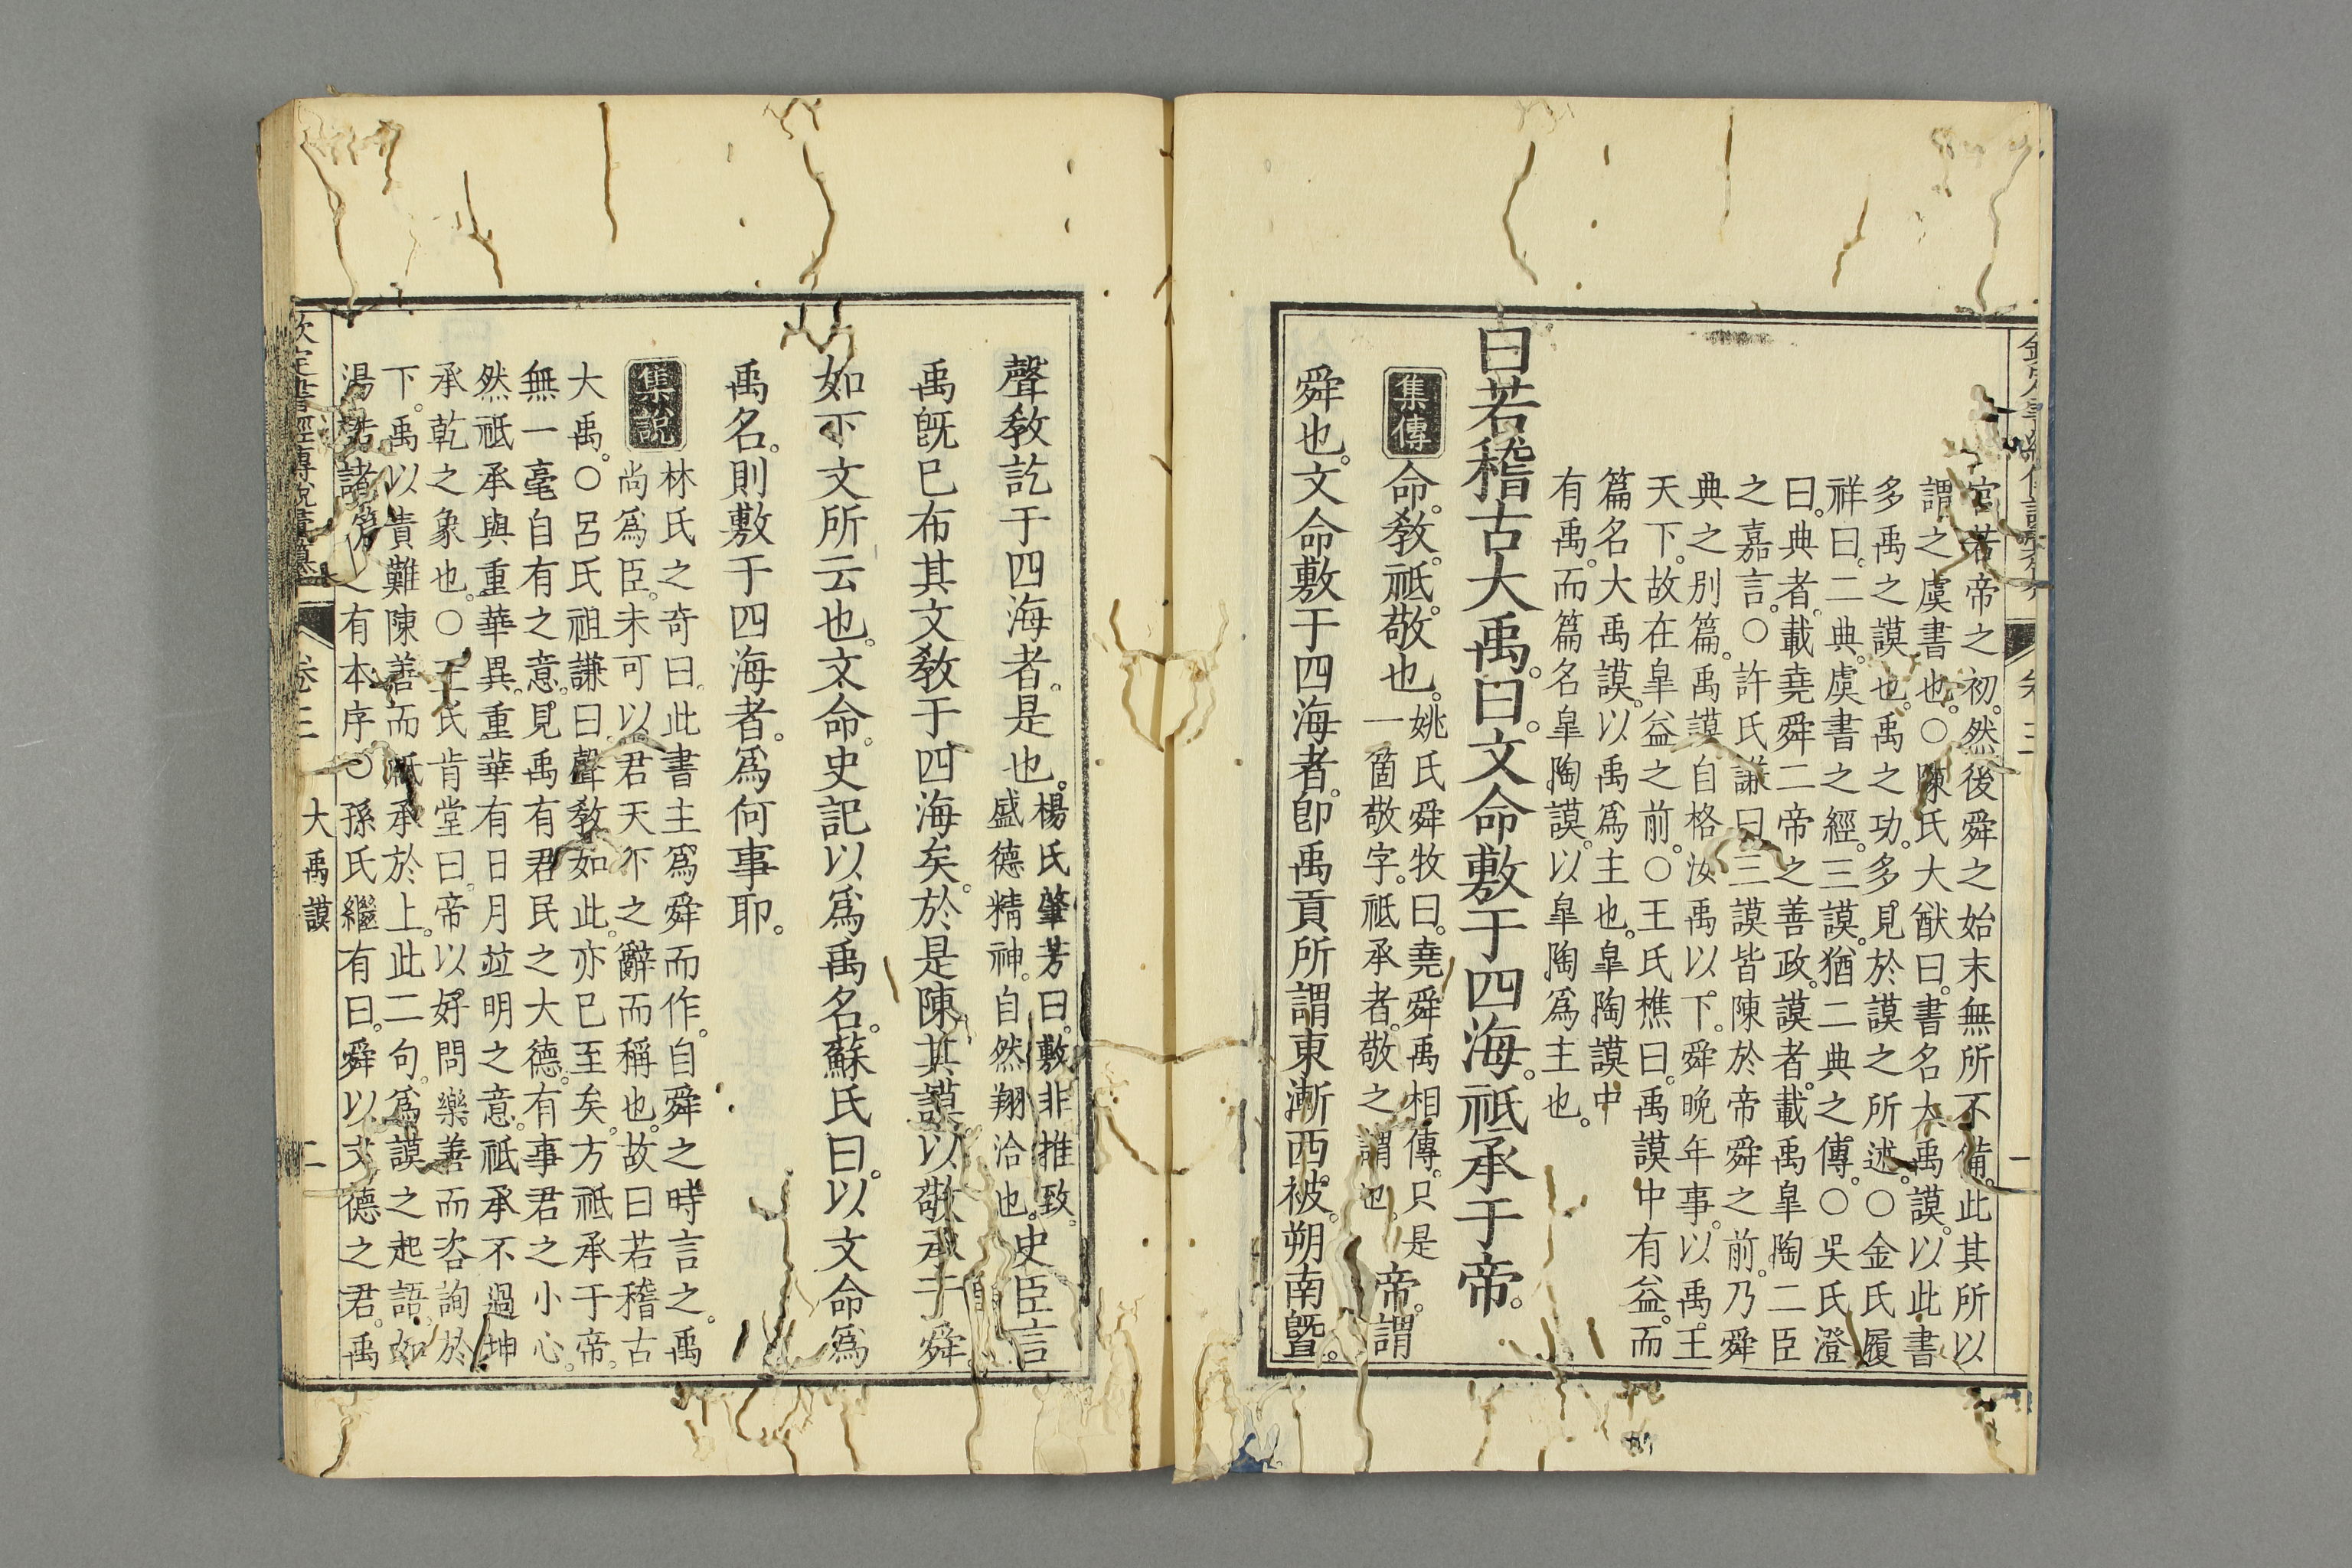 官若帝之初。然後舜之始末無所不備。此其所以
謂之虞書也。○陳氏大猷曰。書名大禹謨。以此書
多禹之謨也。禹之功。多見於謨之所述。○金氏履
祥曰。二典。虞書之經。三謨。猶二典之傳。○吳氏澄
曰。典者。載堯舜二帝之善政。謨者。載禹皐陶二臣
之嘉言。○許氏謙曰。三謨皆陳於帝舜之前。乃舜
典之別篇。禹謨自格汝禹以下。舜晚年事。以禹王
天下。故在皐益之前。○王氏樵曰。禹謨中有益。而
篇名大禹謨。以禹爲主也。皐陶謨中
有禹。而篇名皐陶謨。以皐陶爲主也。
曰若稽古大禹。曰。文命敷于四海。祗承于帝。
集傳
命。敎。祗。敬也。
姚氏舜牧曰。堯舜禹相傳。只是
一箇敬字。祗承者。敬之謂也。
帝。謂
舜也。文命敷于四海者。卽禹貢所謂東漸西被。朔南曁。
聲敎訖于四海者。是也。
楊氏肇芳曰。敷非推致。
盛德精神。自然翔洽也。
史臣言
禹旣已布其文敎于四海矣。於是陳其謨以敬承于舜。
如下文所云也。文命。史記以爲禹名。蘇氏曰。以文命爲
禹名。則敷于四海者。爲何事耶。
集說
林氏之奇曰。此書主爲舜而作。自舜之時言之。禹
尚爲臣。未可以君天下之辭而稱也。故曰若稽古
大禹。○呂氏祖謙曰。聲敎如此。亦已至矣。方祗承于帝。
無一毫自有之意。見禹有君民之大德。有事君之小心。
然祗承與重華異。重華有日月並明之意。祗承不過坤
承乾之象也。○王氏肯堂曰。帝以好問樂善而咨詢於
下。禹以責難陳善而祗承於上。此二句。爲謨之起語。如
湯誥諸篇之有本序。○孫氏繼有曰。舜以文德之君。禹
欽定書經傳說彙纂
卷三
大禹謨
二